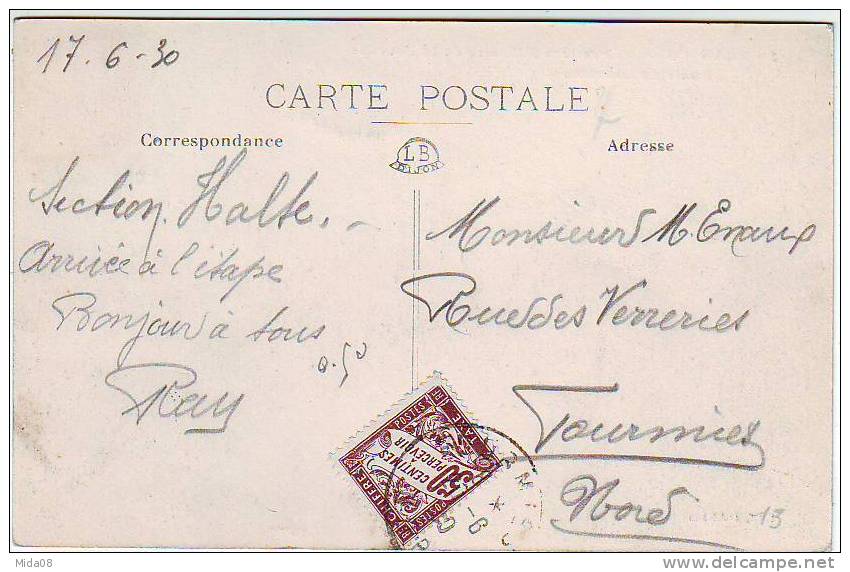 17-6-30
CARTE POSTALE
Correspondance
LB
DIJON
Adresse
Section. Halte. -
Arrivée à l'étape
Bonjour à tous
Ray
0.50
Monsieur M. Evaux
Rue des Verreries
Fourmies
Nord
POSTES FR
TAXE
50
CENTIMES À
PERCEVOIR
CHIFFRE
POSTES
13
Mida08
delcampe.net